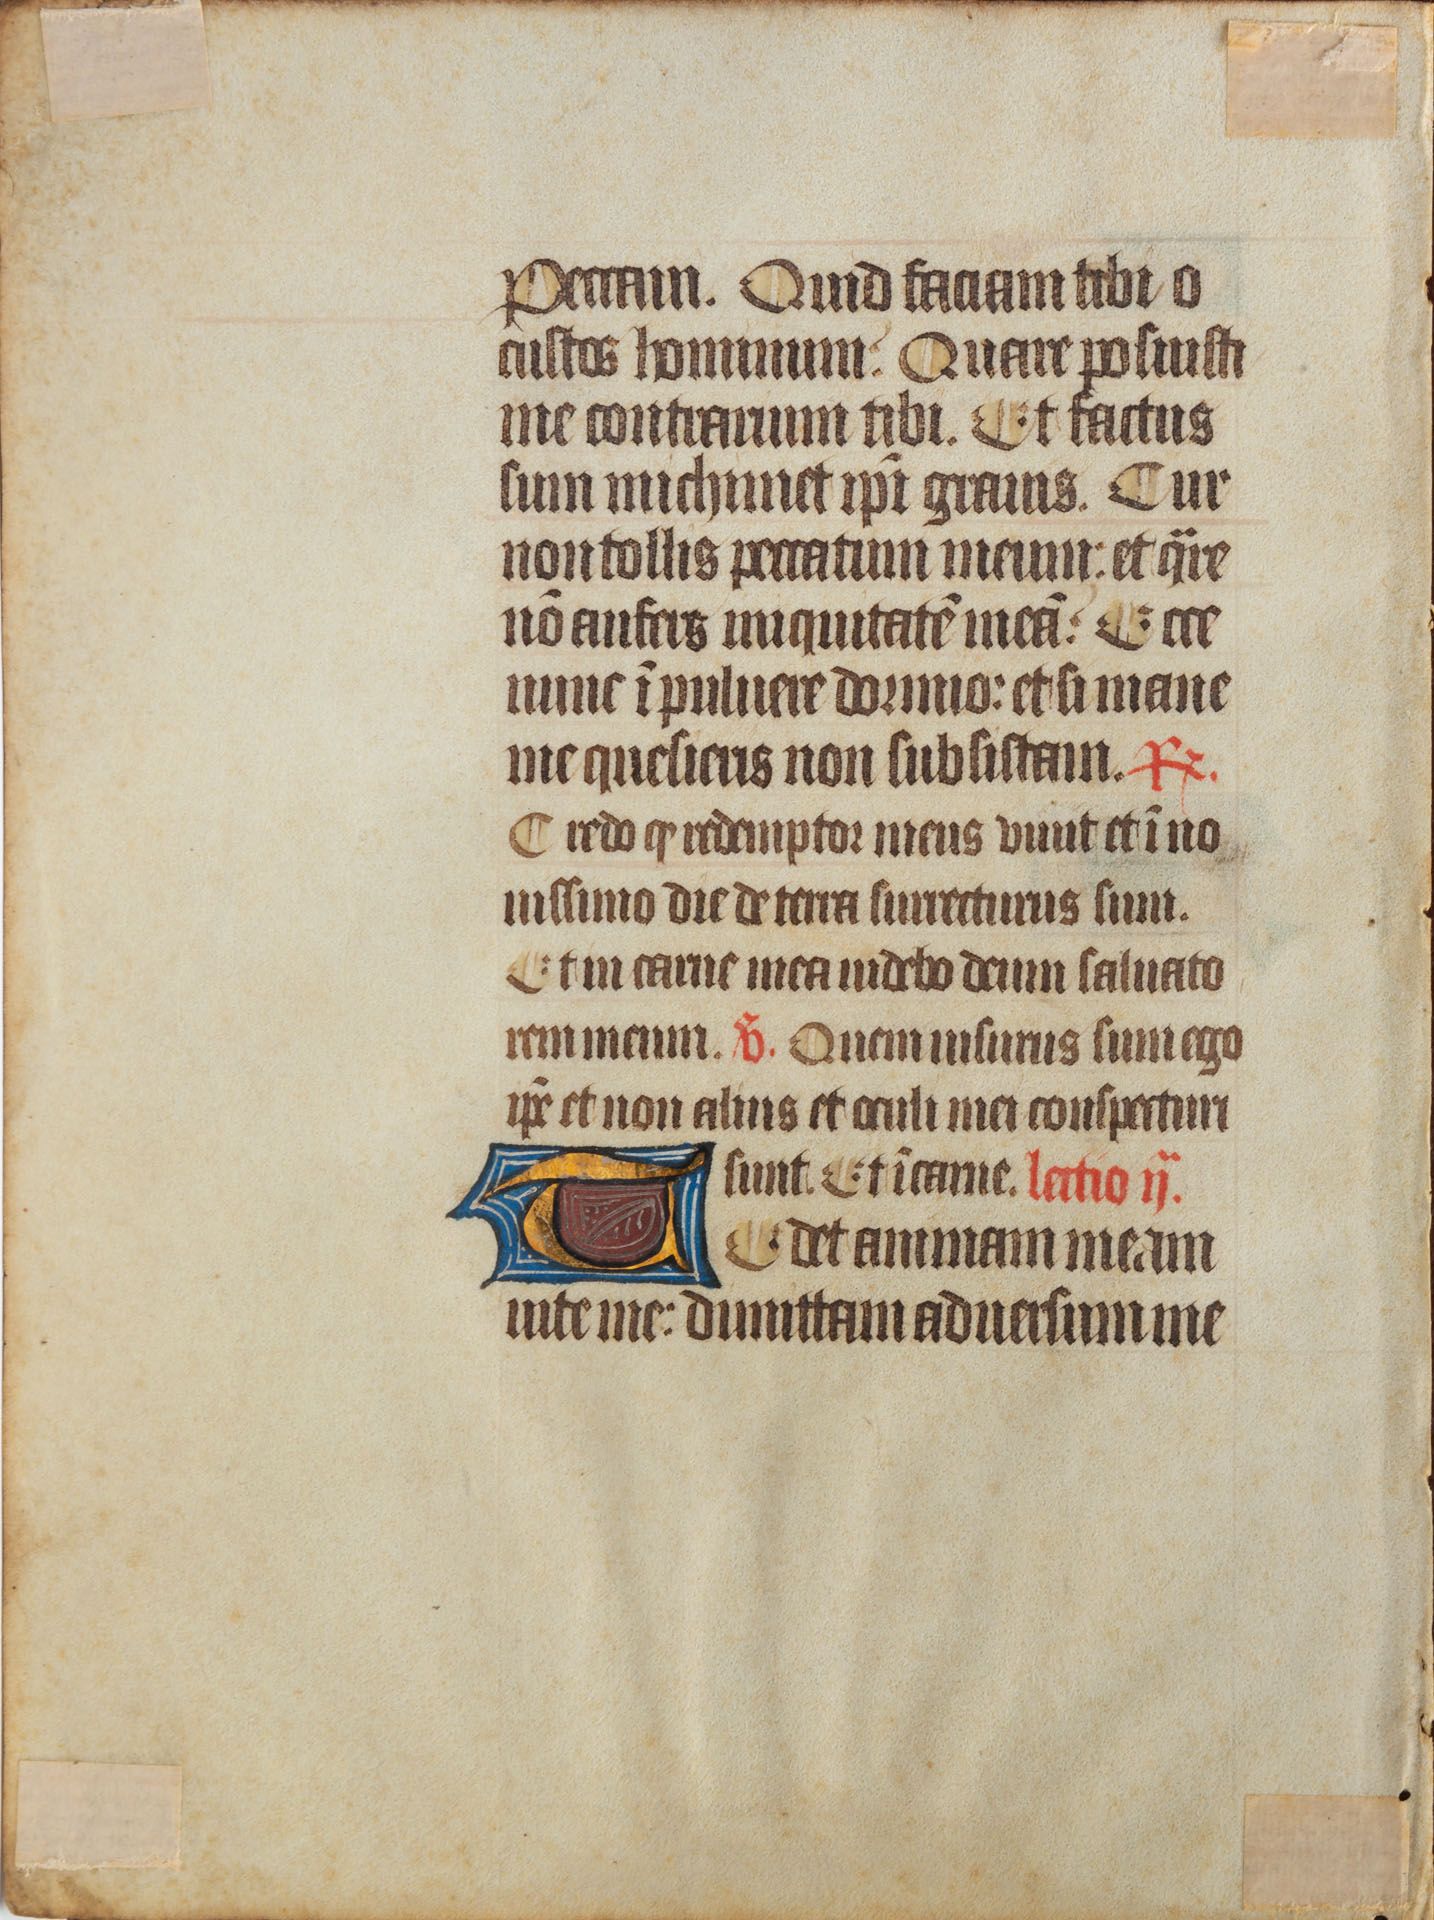 Peccaui. Quid faciam tibi o
custos hominum? Quare posuisti
me contrarium tibi. Et factus
sum michimet ip̄i grauis. Cur
non tollis peccatum meum: et q̄re
nō aufers iniquitatē meā? Ecce
nunc ī puluere dormio: et si mane
me quesieris non subsistam. ℟.
Credo ꝙ redemptor meus viuit et ī no
uissimo die de terra surrecturus sum.
Et in carne mea uidebo deum saluato
rem meum. ℣. Quem uisurus sum ego
ip̄e et non alius et oculi mei conspecturi
sunt. Et ī carne. lectio ij.
TEdet animam meam
uite me: dimittam aduersum me